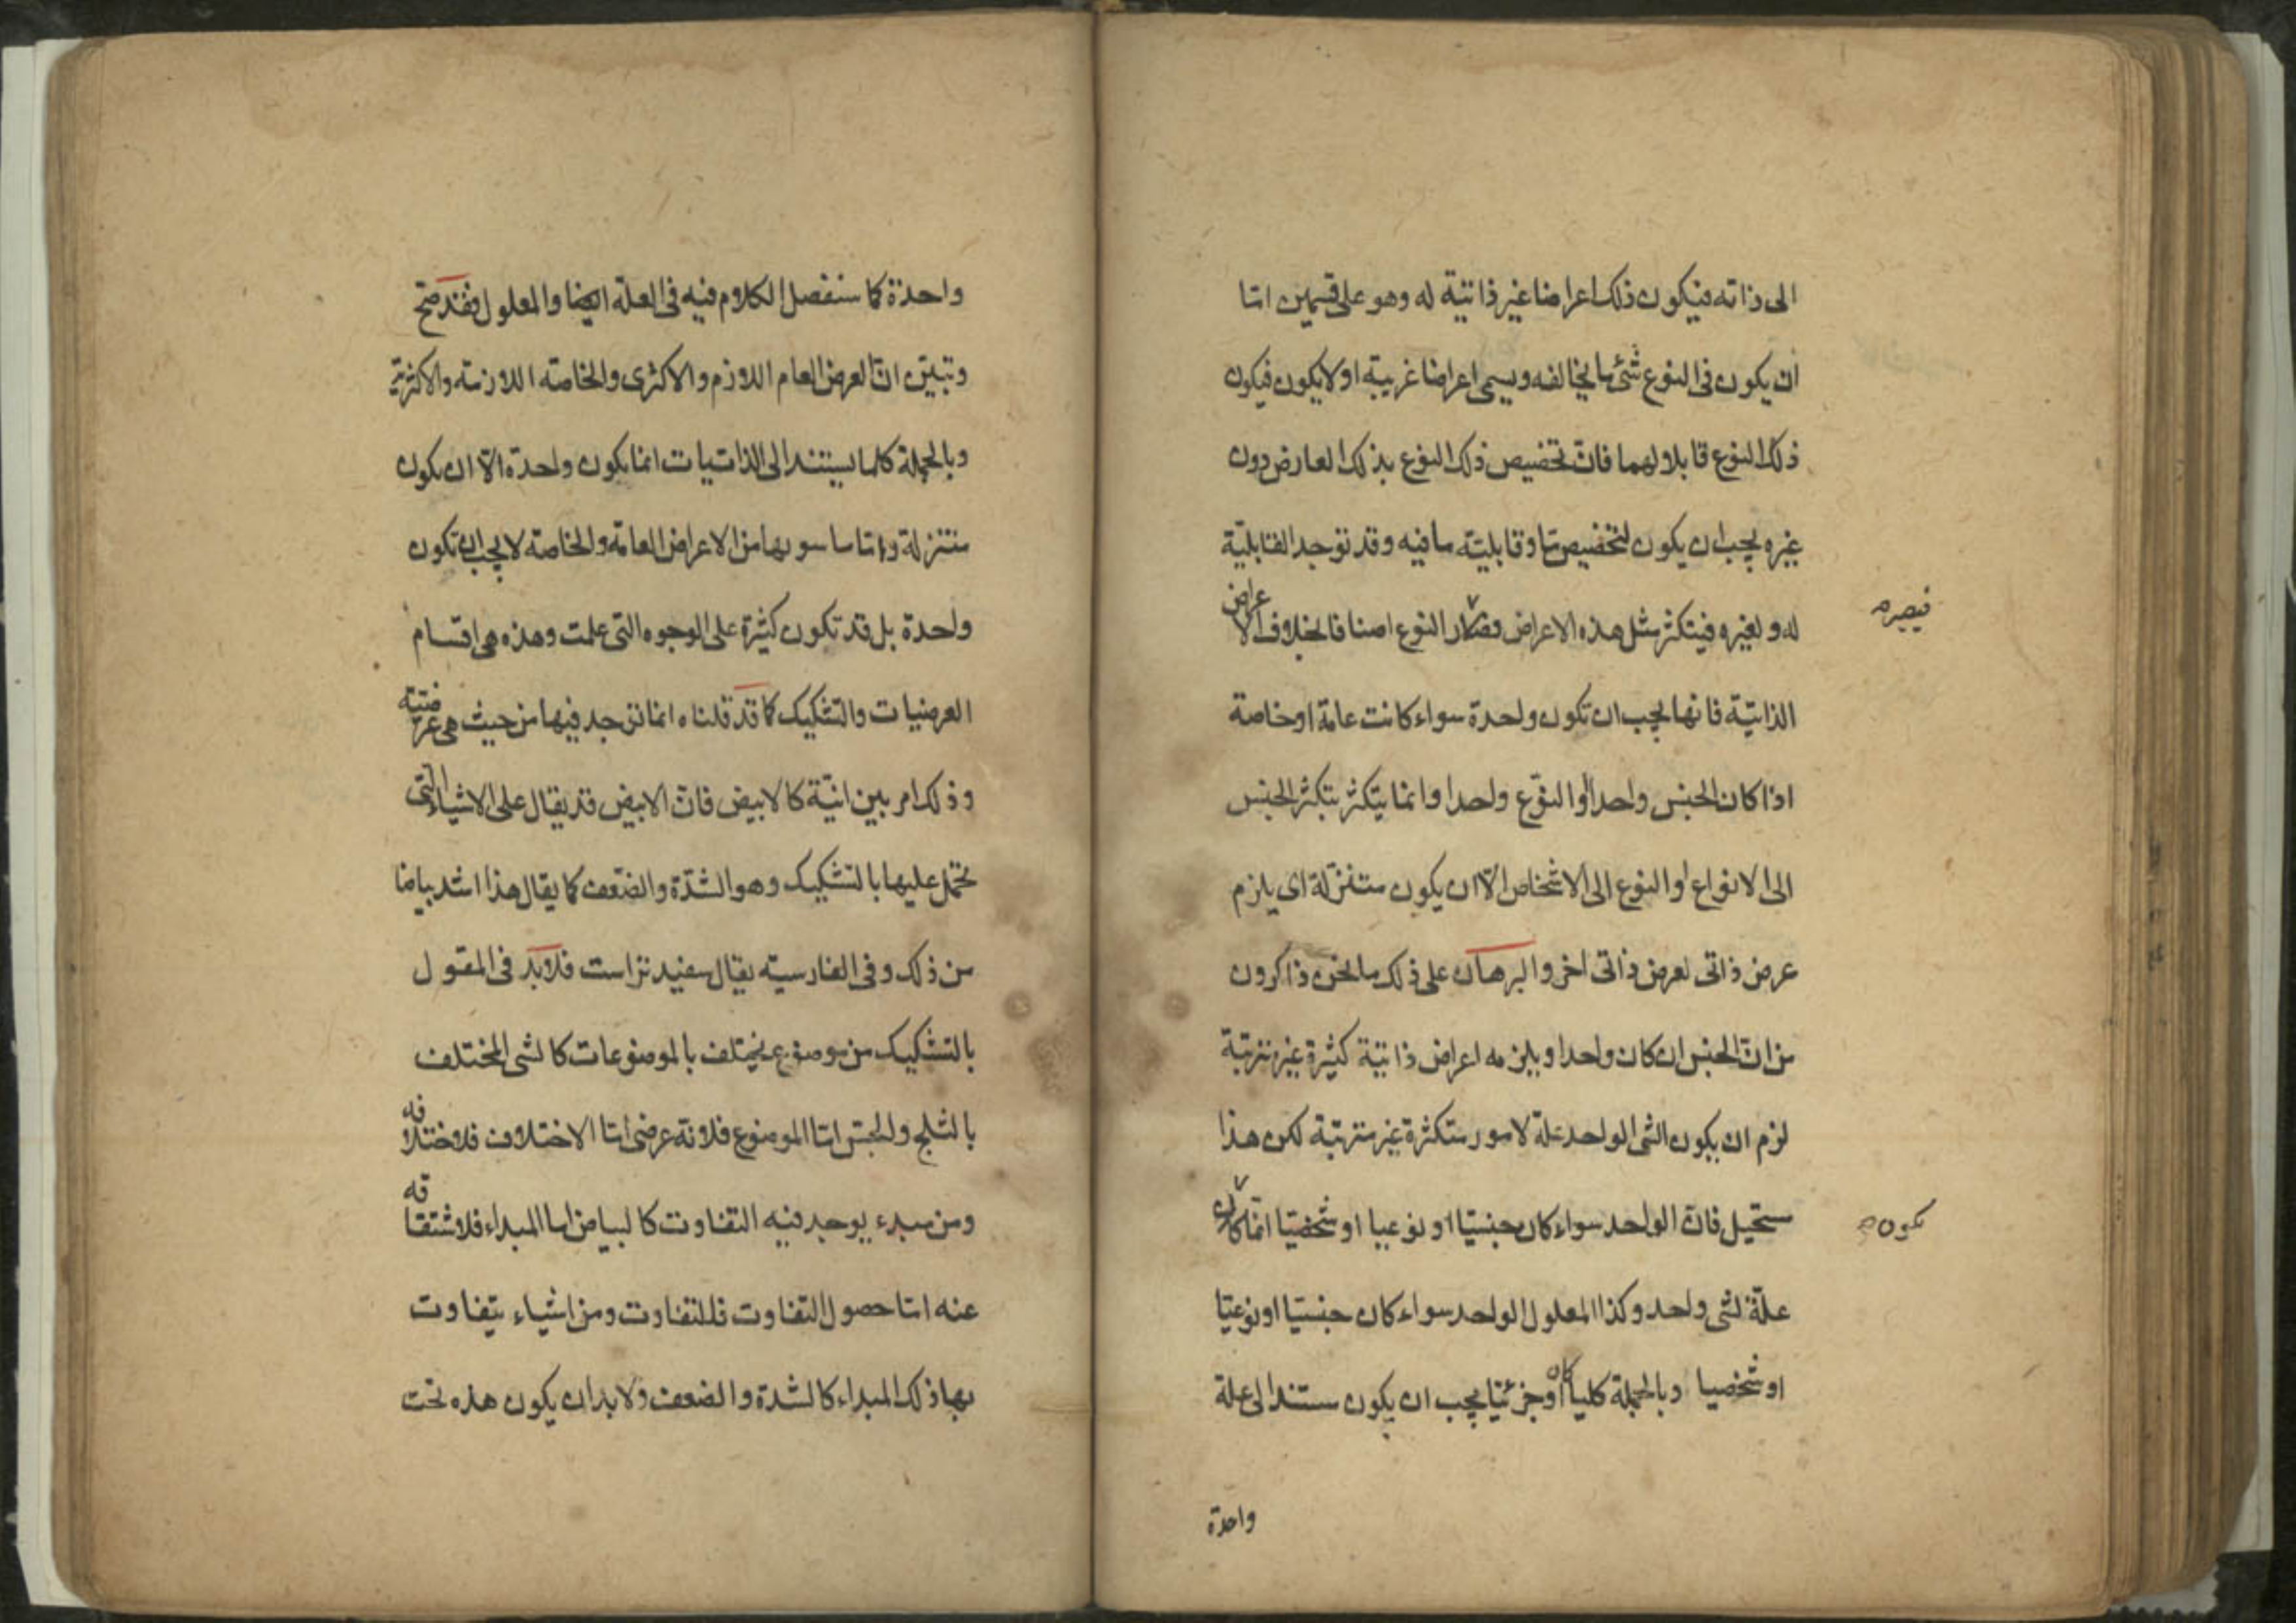 الى ذاته فيكون ذلك اعراضا غير ذاتية له وهو على قسمين اما
ان يكون فى النوع شئ ما يخالفه ويسمى اعراضا غريبة او لا يكون فيكون
ذلك النوع قابلا ولهما فان تخصيص ذلك النوع بذلك العارض دون
غيره يجب ان يكون لتخصيص ما وقابلية ما فيه وقد توجد القابلية
له ولغيره فيتكثر مثل هذه الاعراض النوع اصنافا بخلاف الاعراض
فيصير
الذاتية فانها يجب ان تكون واحدة سواء كانت عامة او خاصة
اذا كان الجنس واحدا او النوع واحدا وانما يتكثر بتكثر الجنس
الى الانواع او النوع الى الاشخاص الا ان يكون متنزلة اى يلزم
عرض ذاتى لعرض ذاتى اخر والبرهان على ذلك ما نحن ذاكرون
من ان الجنس ان كان واحدا ويلزمه اعراض ذاتية كثيرة غير مترتبة
لزم ان يكون الشى الواحد علة لامور متكثرة غير مترتبة لكن هذا
مستحيل فان الواحد سواء كان جنسيا او نوعيا او شخصيا انما كان
يكون
علة لشى واحد وكذا المعلول الواحد سواء كان جنسيا او نوعيا
او شخصيا وبالجملة كليا كان او جزئيا يجب ان يكون مستندا الى علة
واحدة
واحدة كما سنفصل الكلام فيه فى العلة ايضا والمعلول فقد صح
وتبين ان العرض العام اللازم والاكثرى والخاصة اللازمة والاكثرية
وبالجملة كلما يستند الى الذاتيات انما يكون واحدة الا ان يكون
متنزلة واما ما سوىها من الاعراض العامة والخاصة لا يجب ان تكون
واحدة بل قد تكون كثيرة على الوجوه التى علمت وهذه هى اقسام
العرضيات والتشكيك كما قد قلناه انما توجد فيها من حيث هى عرضية
وذلك امر بين انية كالابيض فان الابيض قد يقال على الاشياء التى
تحمل عليها بالتشكيك وهو الشدة والضعف كما يقال هذا اشد بياضا
من ذلك وفى الفارسية يقال سفيد تر است فلابد فى المقول
بالتشكيك من موضوع يختلف بالموضوعات كالشى المختلف
بالثلج والجص اما الموضوع فلانه عرضى اما الاختلاف فلاختلافه
ومن مبدء يوجد فيه التفاوت كالبياض اما المبداء فلاشتقاقه
عنه اما حصول التفاوت فللتفاوت ومن اشياء يتفاوت
بها ذلك المبداء كالشدة والضعف ولا بد ان يكون هذه تحت